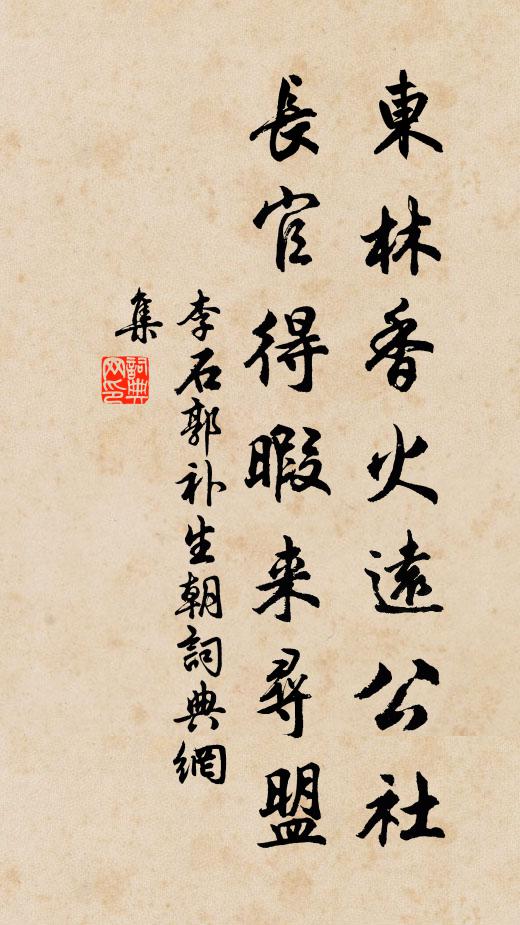 東林香火遠公社
長官得暇来尋盟
李石郭补生朝詞典網
集
詞典网印